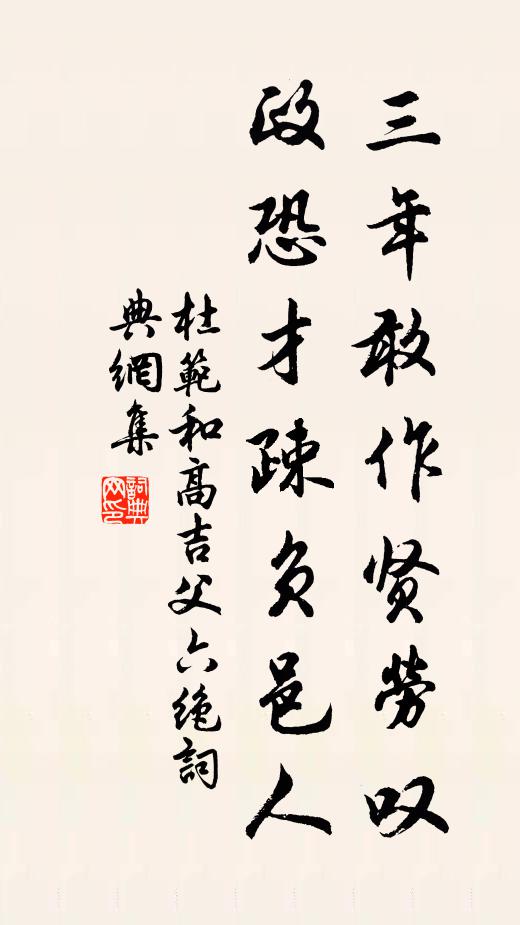 三年敢作贤劳叹
政恐才疎负邑人
杜範和高吉父六绝詞
典網集
詞典网印